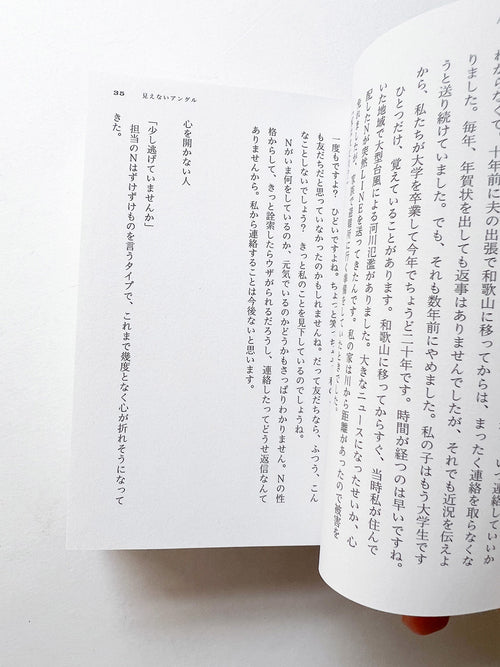 連絡していいか
わからなくて、十年前に夫の出張で和歌山に移ってからは、まったく連絡を取らなくな
りました。毎年、年賀状を出しても返事はありませんでしたが、それでも近況を伝えよ
うと送り続けていました。でも、それも数年前にやめました。私の子はもう大学生です
から、私たちが大学を卒業して今年でちょうど二十年です。時間が経つのは早いですね。
ひとつだけ、覚えていることがあります。和歌山に移ってからすぐ、当時私が住んで
いた地域で大型台風による河川氾濫がありました。大きなニュースになったせいか、心
配したNが突然LINEを送ってきたんです。私の家は川から距離があったので被害を
35 見えないアングル
一度もですよ？ ひどいですよね。ちょっと笑っちゃ
も友だちだと思っていなかったのかもしれませんね。だって友だちなら、ふつう、こん
なことしないでしょう？ きっと私のことを見下しているのでしょうね。
Nがいま何をしているのか、元気でいるのかどうかもさっぱりわかりません。Nの性
格からして、きっと詮索したらウザがられるだろうし、連絡したってどうせ返信なんて
ありませんから。私から連絡することは今後ないと思います。
心を開かない人
「少し逃げていませんか」
担当のNはずけずけものを言うタイプで、これまで幾度となく心が折れそうになって
きた。